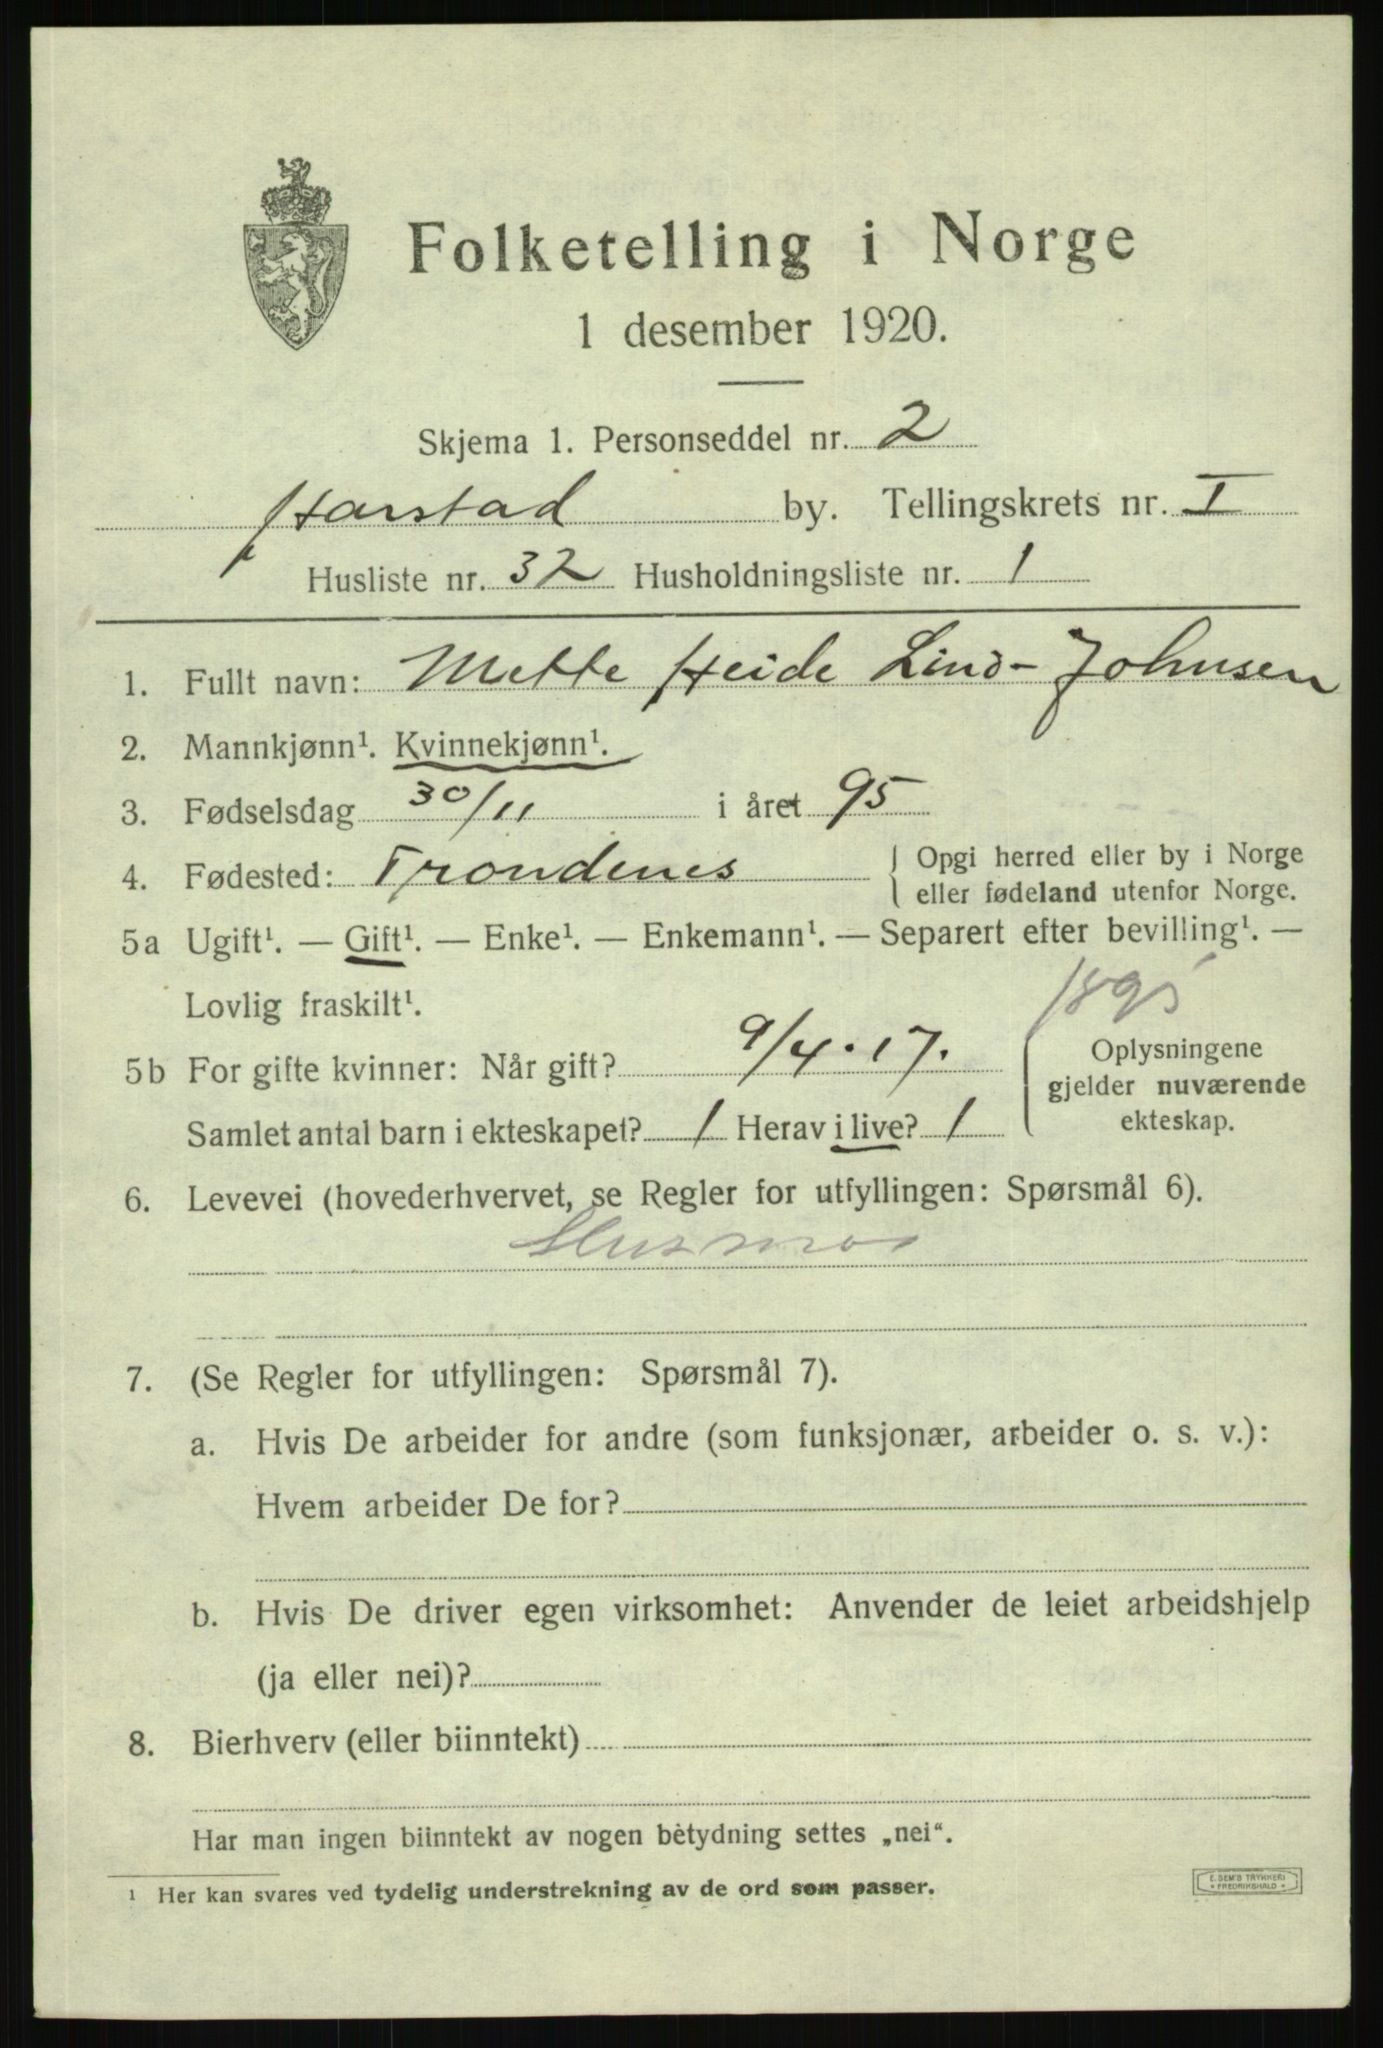 Folketelling i Norge
1 desember 1920.
Skjema 1. Personseddel nr. 2
Harstad by. Tellingskrets nr. I
Husliste nr. 32 Husholdningsliste nr. 1
1. Fullt navn: Mette Heide Lind-Johnsen
2. Mannkjønn¹. Kvinnekjønn¹.
3. Fødselsdag 30/11 i året 95
4. Fødested: Trondenes { Opgi herred eller by i Norge
eller fødeland utenfor Norge.
5a Ugift¹. — Gift¹. — Enke¹. — Enkemann¹. — Separert efter bevilling¹. —
Lovlig fraskilt¹.
1895
5b For gifte kvinner: Når gift? 9/4.17.
Samlet antal barn i ekteskapet? 1 Herav i live? 1
Oplysningene
gjelder nuværende
ekteskap.
6. Levevei (hovederhvervet, se Regler for utfyllingen: Spørsmål 6).
Husmor
7. (Se Regler for utfyllingen: Spørsmål 7).
a. Hvis De arbeider for andre (som funksjonær, arbeider o. s. v.):
Hvem arbeider De for?
b. Hvis De driver egen virksomhet: Anvender de leiet arbeidshjelp
(ja eller nei)?
8. Bierhverv (eller biinntekt)
Har man ingen biinntekt av nogen betydning settes „nei“.
¹ Her kan svares ved tydelig understrekning av de ord som passer.
E. SEM'S TRYKKERI
• FREDRIKSHALD •